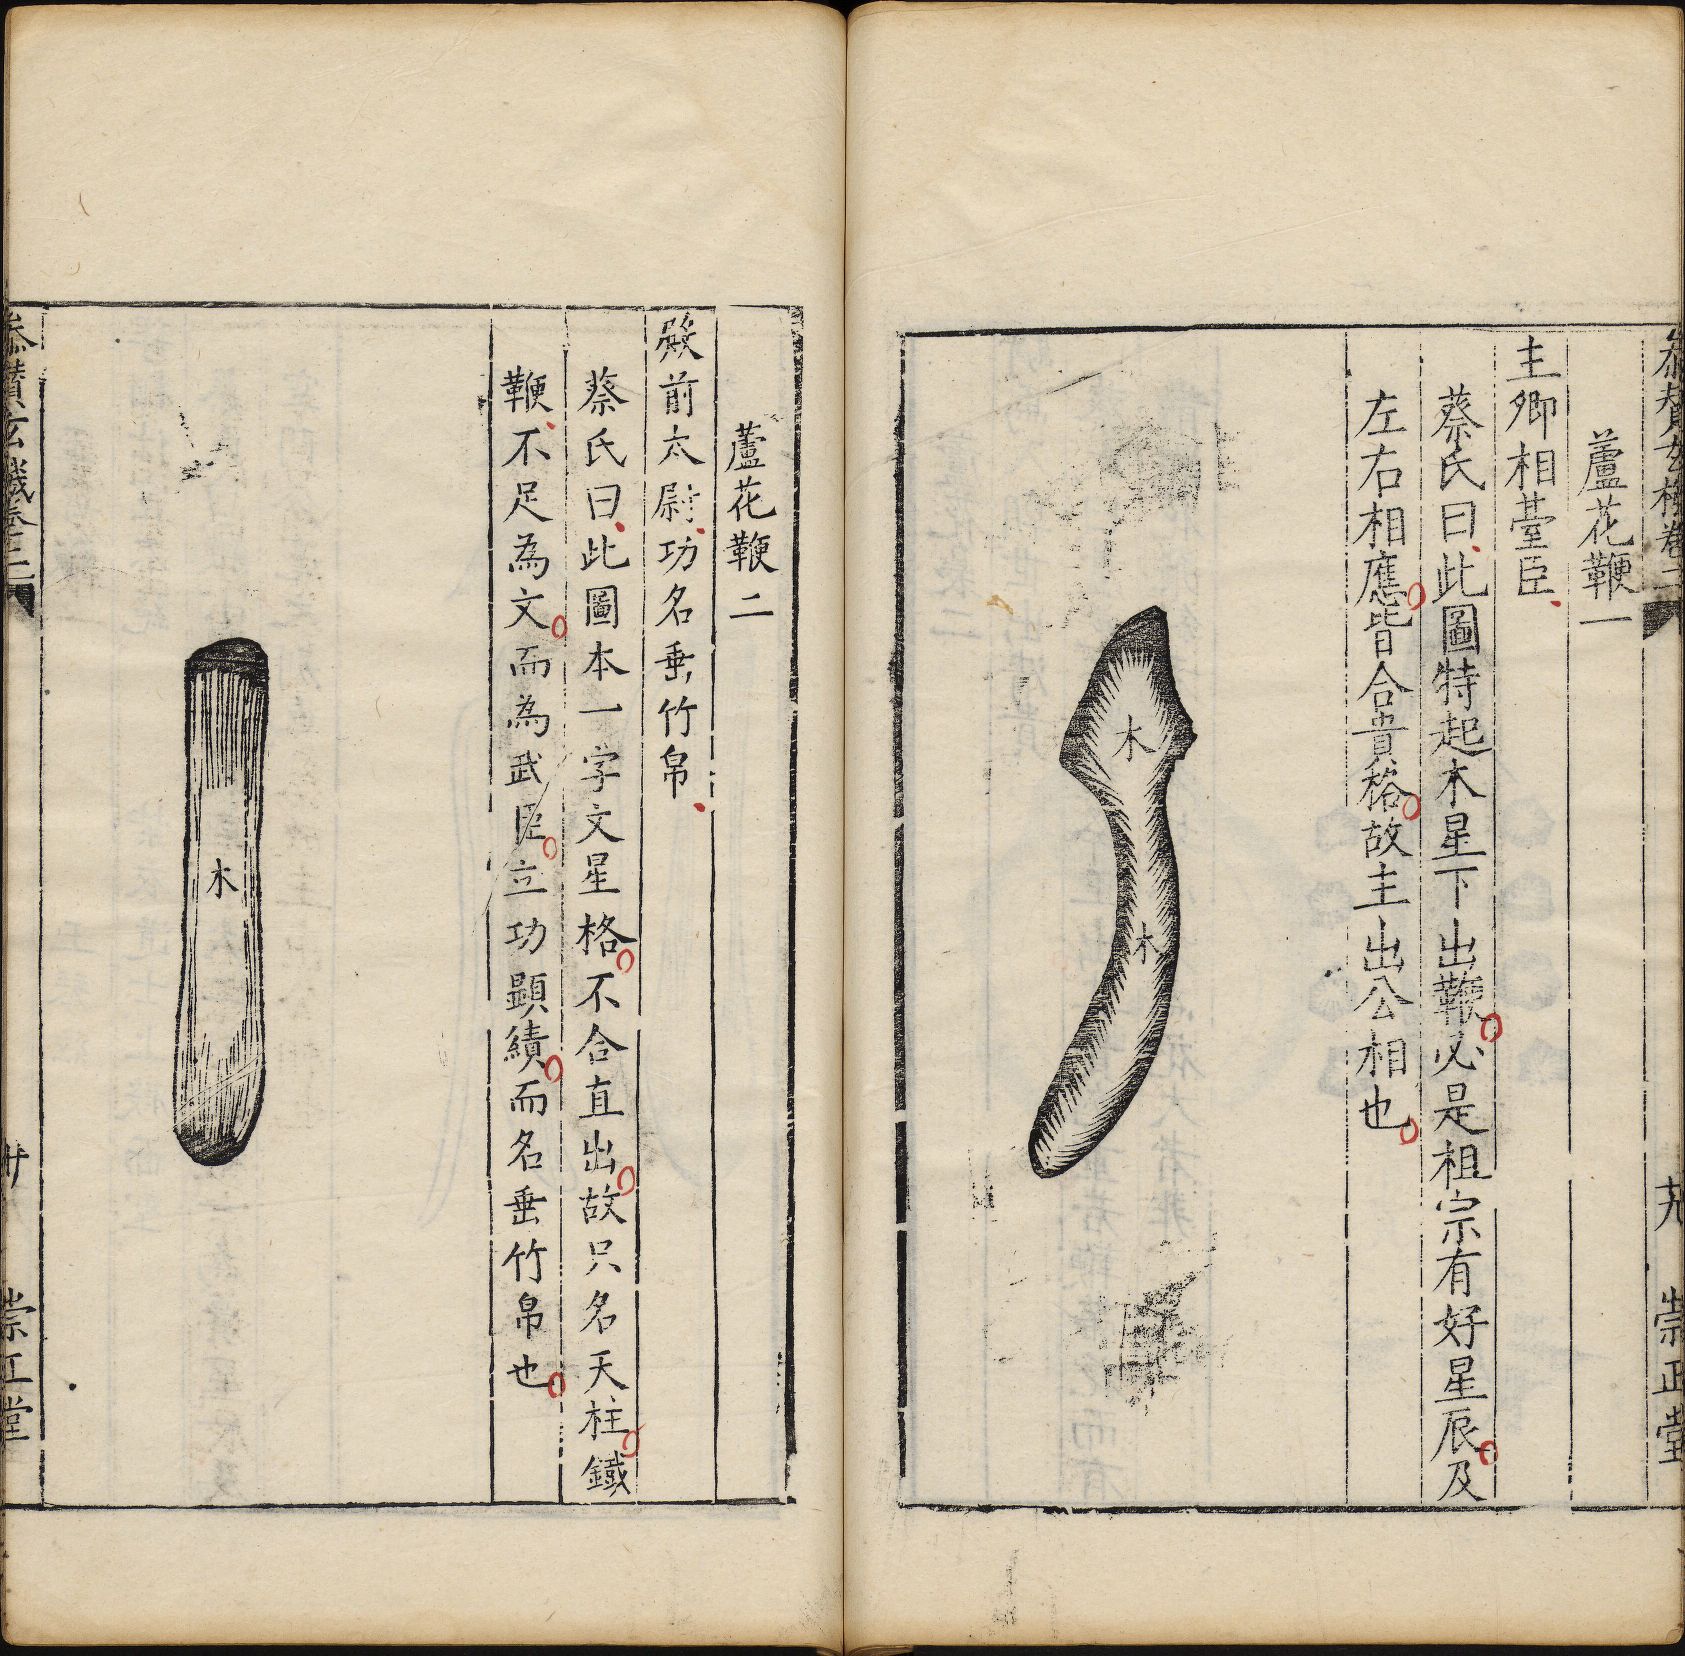 參贊玄機卷三
崇正堂
蘆花鞭一
主卿相臺臣
蔡氏曰此圖特起木星下出鞭必是祖宗有好星辰及
左右相應皆合貴格故主出公相也
木
木
蘆花鞭二
殿前太尉功名垂竹帛
蔡氏曰此圖本一字文星格不合直出故只名天柱鐵
鞭不足為文而為武臣立功顯績而名垂竹帛也
木
參贊玄機卷三
廿
崇正堂